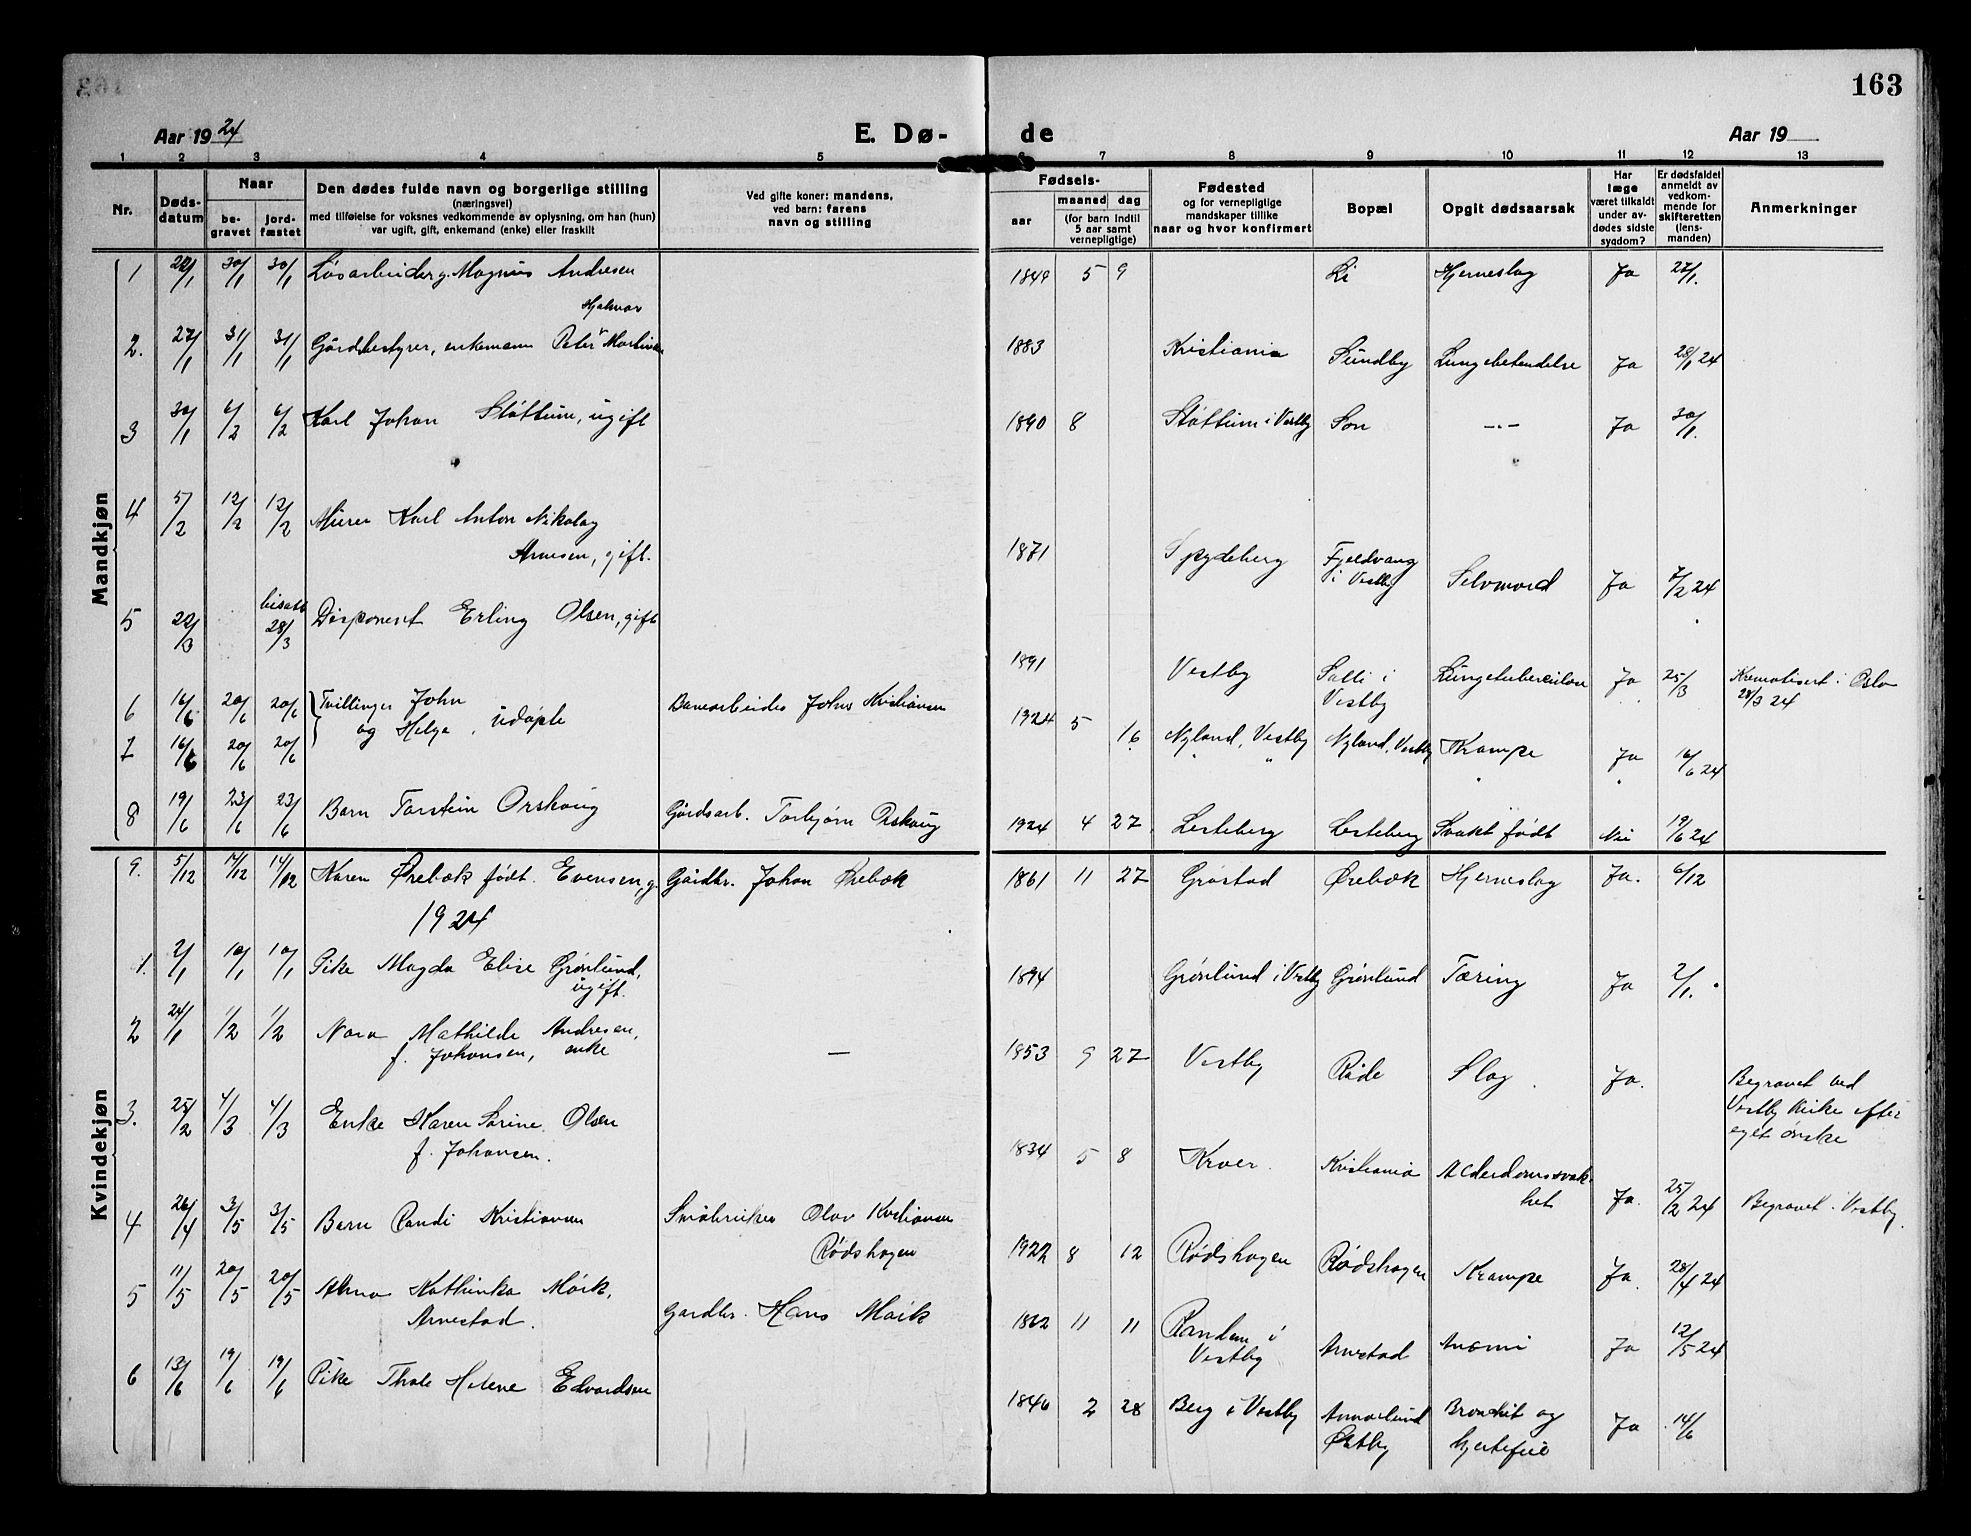 163
Aar 1924 E. Dø- de Aar 19
1 2 3 4 5 6 7 8 9 10 11 12 13
Nr. Dødsdatum Naar begravet jordfæstet
Den dødes fulde navn og borgerlige stilling
(næringsvei)
med tilføielse for voksnes vedkommende av oplysning, om han (hun)
var ugift, gift, enkemand (enke) eller fraskilt
Ved gifte koner: mandens,
ved barn: farens
navn og stilling
Fødsels- aar maaned dag
(for barn indtil 5 aar samt vernepligtige)
Fødested
og for vernepligtige
mandskaper tillike
naar og hvor konfirmert
Bopæl
Opgit dødsaarsak
Har læge været tilkaldt under avdødes sidste sygdom?
Er dødsfaldet anmeldt av vedkommende for skifteretten (lensmanden)
Anmerkninger
Mandkjøn
1 30/1 30/1 Løsarbeider g. Magnus Andresen 1849 5 9 Li Hjerneslag Ja 27/1.
Hjalmar
2. 27/1 31/1 31/1 Gårdbestyrer, enkemann Peter Martinsen 1883 Kristiania Sundby Lungebetendelse Ja 28/1 24
3 30/1 6/2 6/2 Karl Johan Støttum, ugift 1890 8 Støttum i Vestby Son -"- Ja 30/1.
4 5/2 12/2 12/2 Murer Karl Anton Nikolay
Arnesen, gift. 1871 Spydeberg Fjeldvang
i Vestby Selvmord Ja 7/2 24
5 22/3 bisatt
28/3 Disponent Erling Olsen, gift 1891 Vestby i
Vestby Lungetuberculose Ja 25/3 Kremotisert i Oslo
28/3 24
6 16/6 20/6 20/6 Tvillinger John
og Helge, udøpte Banearbeider Johns Kristiansen 1924 5 16 Nyland, Vestby Nyland, Vestby Krampe Ja 16/6 24
7 16/6 20/6 20/6 " "
8 19/6 23/6 23/6 Barn Torstein Orskoug Gårdsarb. Torbjørn Orskoug 1924 4 27. Lesteberg Lesteberg Svakt født Nei 19/6 24
9. 5/12 14/12 14/12 Karen Ørebæk født Evensen, g. Gårdbr. Johan Ørebæk 1861 11 27 Grøstad Ørebæk Hjerneslag Ja. 6/12
Kvindekjøn
1924
1. 2/1 10/1 10/1 Pike Magda Elise Grønlund,
ugift. 1894 Grønlund i Vestby Grønlund Tæring Ja 2/1.
2 24/1 1/2 1/2 Nora Mathilde Andresen,
f. Johansen, enke — 1853 9 27 Vestby Råde Slag. Ja. Begravet ved
Vestby Kirke efter
eget ønske
3. 25/2 4/3 4/3 Enke Karen Sørine Olsen
f. Johansen. 1834 5 8 Kroer. Kristiania Alderdomssvakhet Ja. 25/2 24 Begravet i Vestby.
4 26/4 3/5 3/5 Barn Randi Kristiansen Småbruker Olav Kristiansen
Rødshagen 1922 8 12 Rødshagen Rødshagen Krampe Ja. 28/4 24
5 11/5 20/5 20/5 Anna Kathinka Mørk,
Arnestad. Gardbr. Hans Mørk 1862 11 11 Randem i
Vestby Arnestad Anæmi Ja 12/5 24
6 13/6 19/6 19/6 Pike Thale Helene Edvardsen 1846 2 28 Berg i Vestby
Østby Bronchit og
hjertefeil Ja 14/6